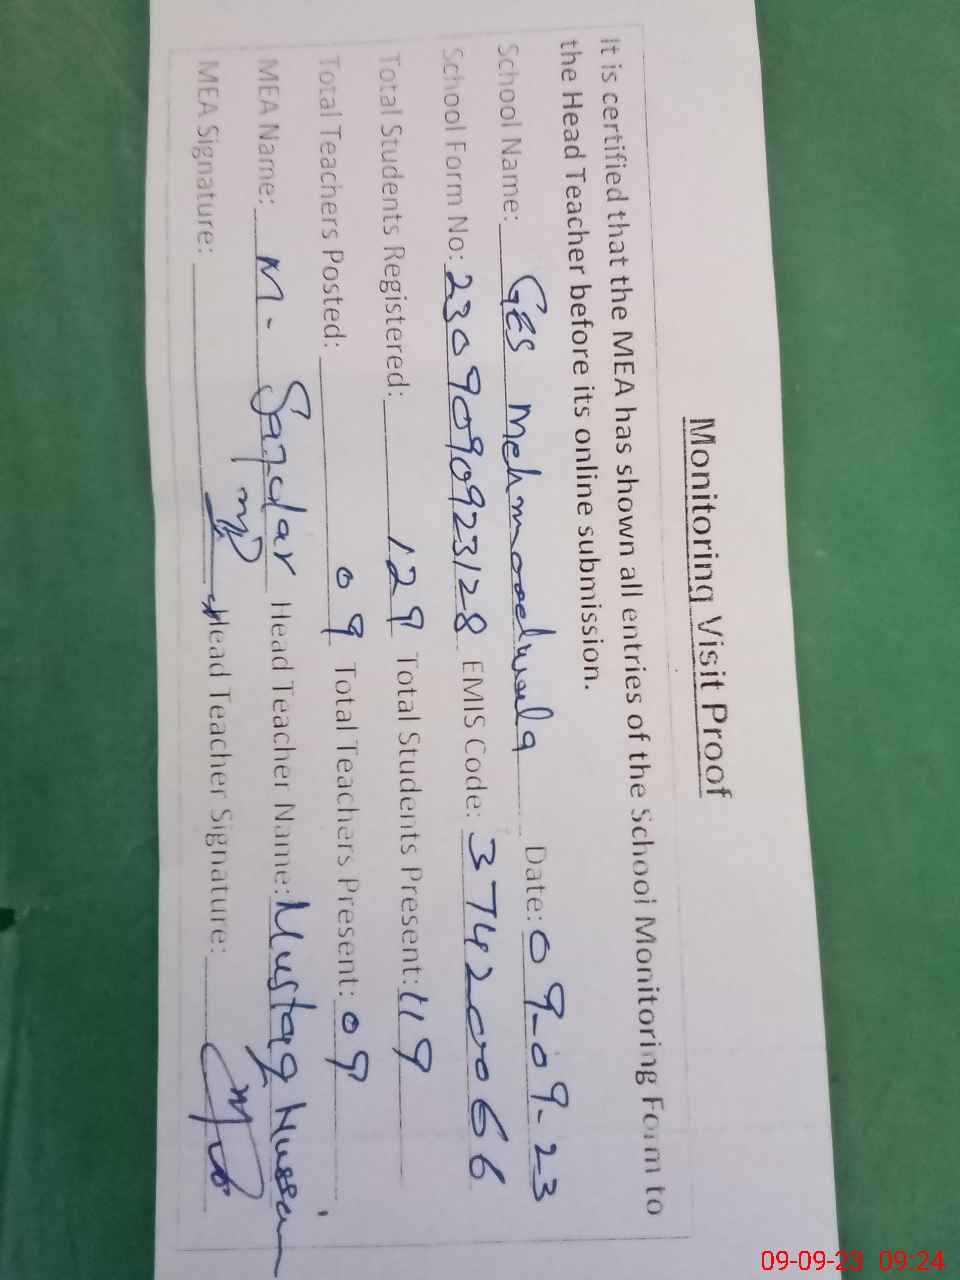 Monitoring Visit Proof
It is certified that the MEA has shown all entries of the School Monitoring Form to
the Head Teacher before its online submission.
School Name: GES Mehmoodwala Date: 09-09-23
School Form No: 2309090923128 EMIS Code: 37420066
Total Students Registered: 129 Total Students Present: 119
Total Teachers Posted: 09 Total Teachers Present: 09
MEA Name: M. Safdar Head Teacher Name: Mustaq Hussain
MEA Signature: Head Teacher Signature:
09-09-23 09:24